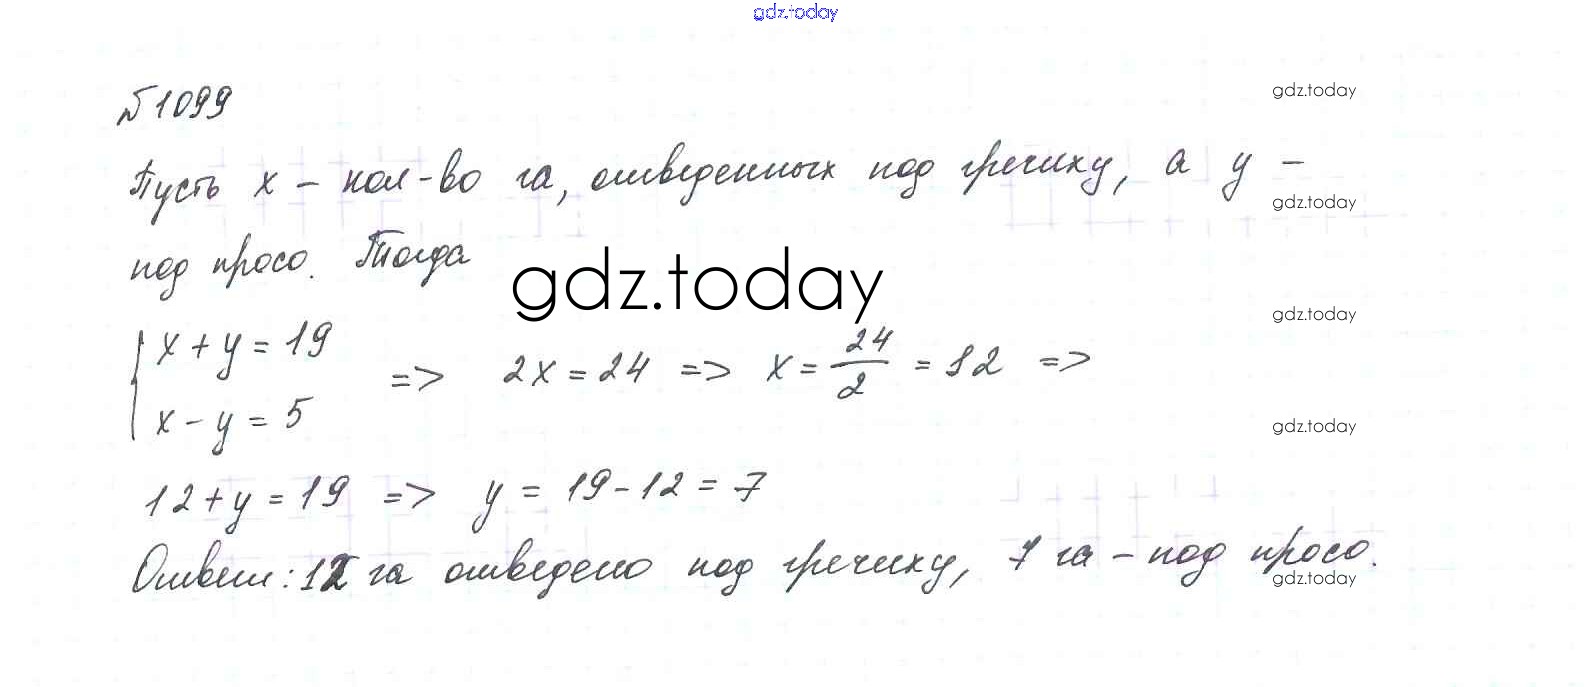 gdz.today
№1099
gdz.today
Пусть x - кол-во га, отведенных под гречиху, а y -
gdz.today
под просо. Тогда
gdz.today
gdz.today
x + y = 19
x - y = 5
=> 2x = 24 => x = 24/2 = 12 =>
gdz.today
12 + y = 19 => y = 19 - 12 = 7
Ответ: 12 га отведено под гречиху, 7 га - под просо.
gdz.today